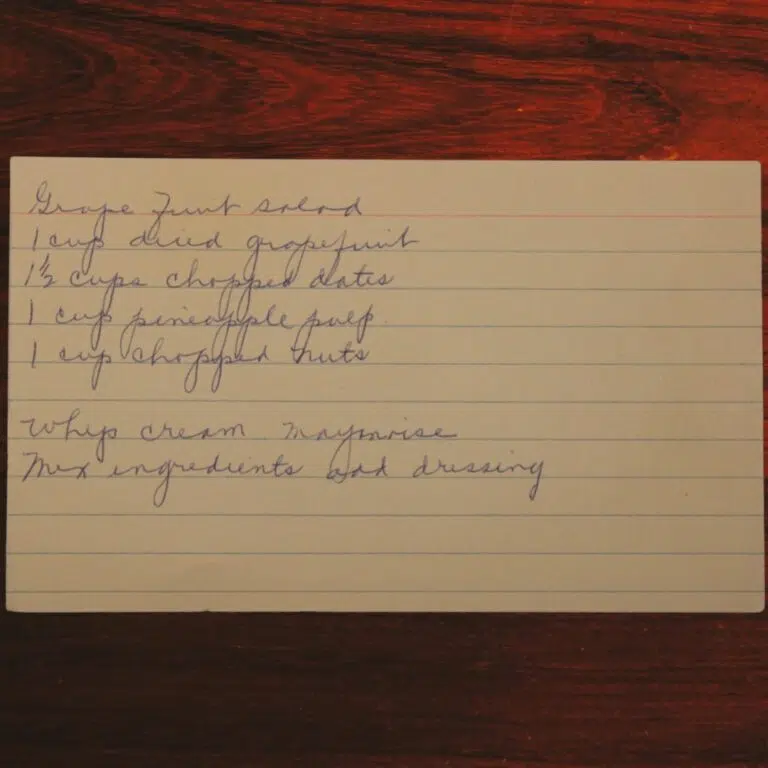 Grape Fruit salad
1 cup diced grapefruit
1½ cups chopped dates
1 cup pineapple pulp.
1 cup chopped nuts
Whip cream mayonoise
Mix ingredients add dressing